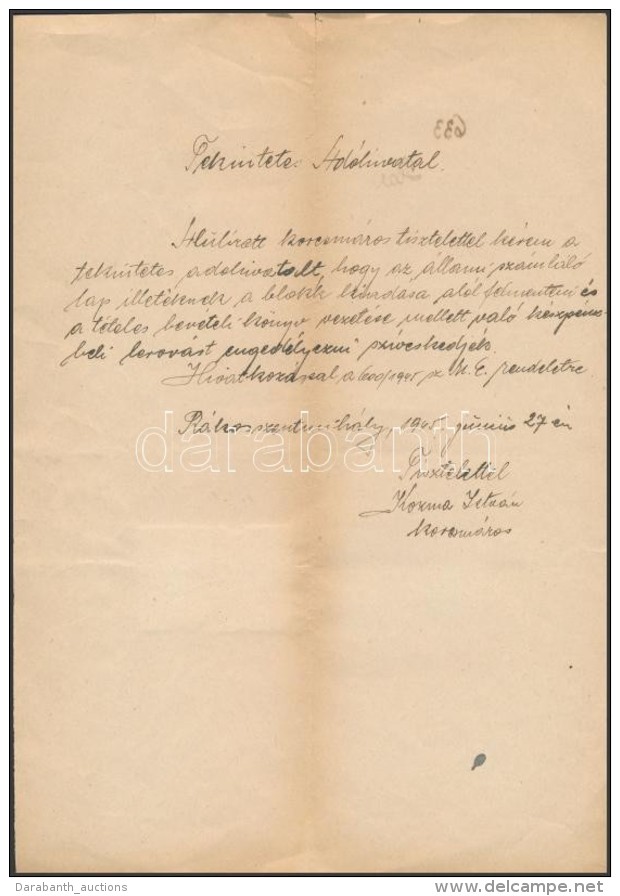 633
Tekintetes Adóhivatal.
Alulirott korcsmáros tisztelettel kérem a
tekintetes adohivatalt, hogy az állami számláló
lap illetéknek a blokk kiadása alól felmenteni és
a tételes bevételi könyv vezetése mellett való készpénz-
beli lerovást engedélyezni sziveskedjék.
Hivatkozással a 600/1945 sz M. E. rendeletre
Rákosszentmihály, 1945 junius 27 én
darabanth
Tisztelettel
Kozma István
korcsmáros
Darabanth_auctions
www.delcampe.net